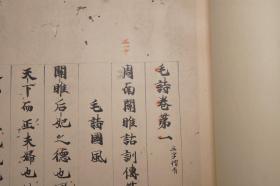 毛詩卷第一
周南關雎詁訓傳第
毛詩國風
關雎后妃之德也風
天下而正夫婦也